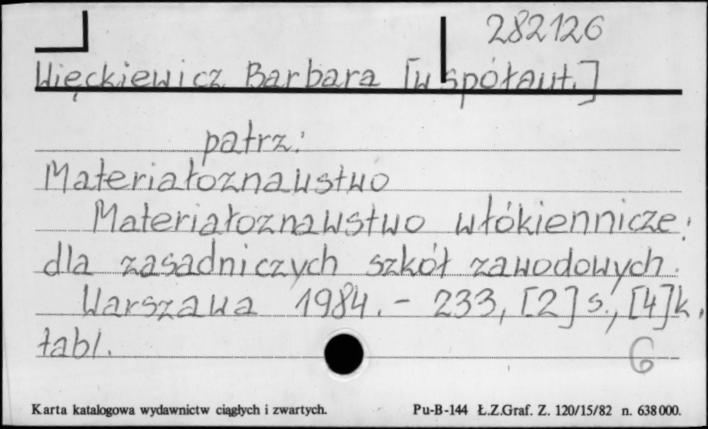 282126
Więckiewicz Barbara [współaut.]
patrz:
Materiałoznawstwo
Materiałoznawstwo włókiennicze:
dla zasadniczych szkół zawodowych.
Warszawa 1984. - 233, [2] s., [4] k.
tabl.
G
Karta katalogowa wydawnictw ciągłych i zwartych. Pu-B-144 Ł.Z.Graf. Z. 120/15/82 n. 638000.